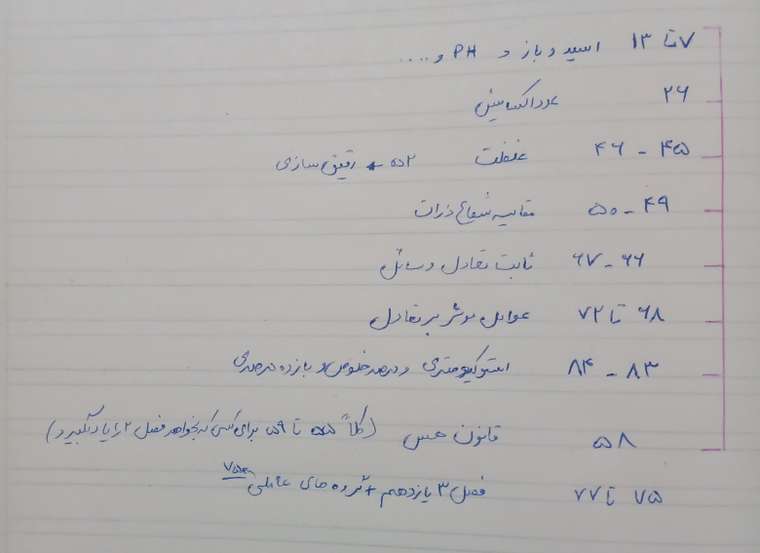 ۷ تا ۱۳ اسید و باز و PH و ....
۲۶ عدد اکسایش
۴۵ - ۴۶ غلظت ۵۲ ← رقیق سازی
۴۹ - ۵۰ مقایسه شعاع ذرات
۶۶ - ۶۷ ثابت تعادل و مسائل
۶۸ تا ۷۲ عوامل موثر بر تعادل
۸۳ - ۸۴ استوکیومتری و درصد خلوص و بازده درصدی
۵۸ قانون هس (کلاً ۵۵ تا ۵۹ برای کسی که بخواهد فصل ۲ را یاد بگیرد)
۷۵ تا ۷۷ فصل ۳ یازدهم + گروه های عاملی